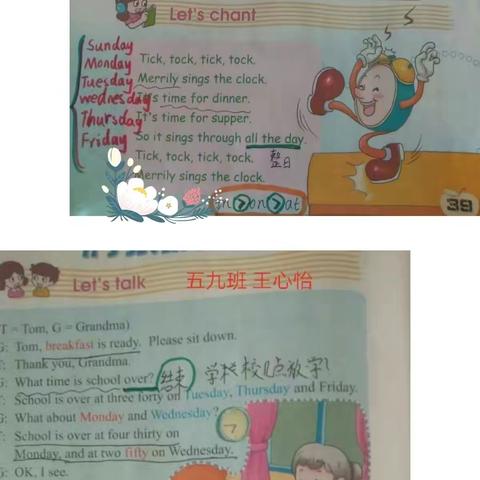 Let's chant
Sunday
Monday
Tuesday
wednesday
Thursday
Friday
Tick, tock, tick, tock.
Merrily sings the clock.
It's time for dinner.
It's time for supper.
So it sings through all the day.
整日
Tick, tock, tick, tock.
Merrily sings the clock.
in > on > at
39
Let's talk
五九班 王心怡
T = Tom, G = Grandma)
G: Tom, breakfast is ready. Please sit down.
T: Thank you, Grandma.
G: What time is school over? 结束
T: School is over at three forty on Tuesday, Thursday and Friday.
G: What about Monday and Wednesday?
T: School is over at four thirty on
Monday, and at two fifty on Wednesday.
G: OK, I see.